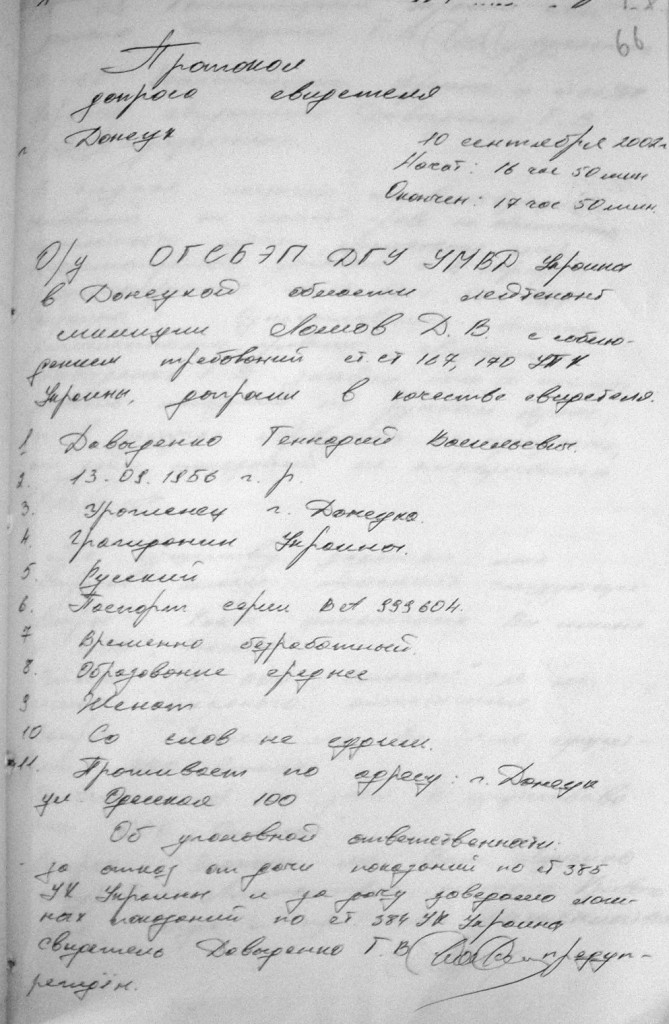 66
Протокол
допроса свидетеля
г. Донецк
10 сентября 2002 г.
Начат: 16 час 50 мин
Окончен: 17 час 50 мин.
О/у ОГСБЭП ДГУ УМВД Украины
в Донецкой области лейтенант
милиции Ломов Д. В. с соблю-
дением требований ст ст 167, 170 УПК
Украины, допросил в качестве свидетеля.
1 Давыденко Геннадий Васильевич.
2. 13.09.1956 г. р.
3. Уроженец г. Донецка.
4. Гражданин Украины.
5. Русский
6. Паспорт серии ВА 999604.
7 Временно безработный.
8. Образование среднее
9 Женат
10 Со слов не судим.
11. Проживает по адресу: г. Донецк
ул Одесская 100
Об уголовной ответственности
за отказ от дачи показаний по ст 385
УК Украины и за дачу заведомо лож-
ных показаний по ст 384 УК Украины
свидетель Давыденко Г. В предуп-
реждён.